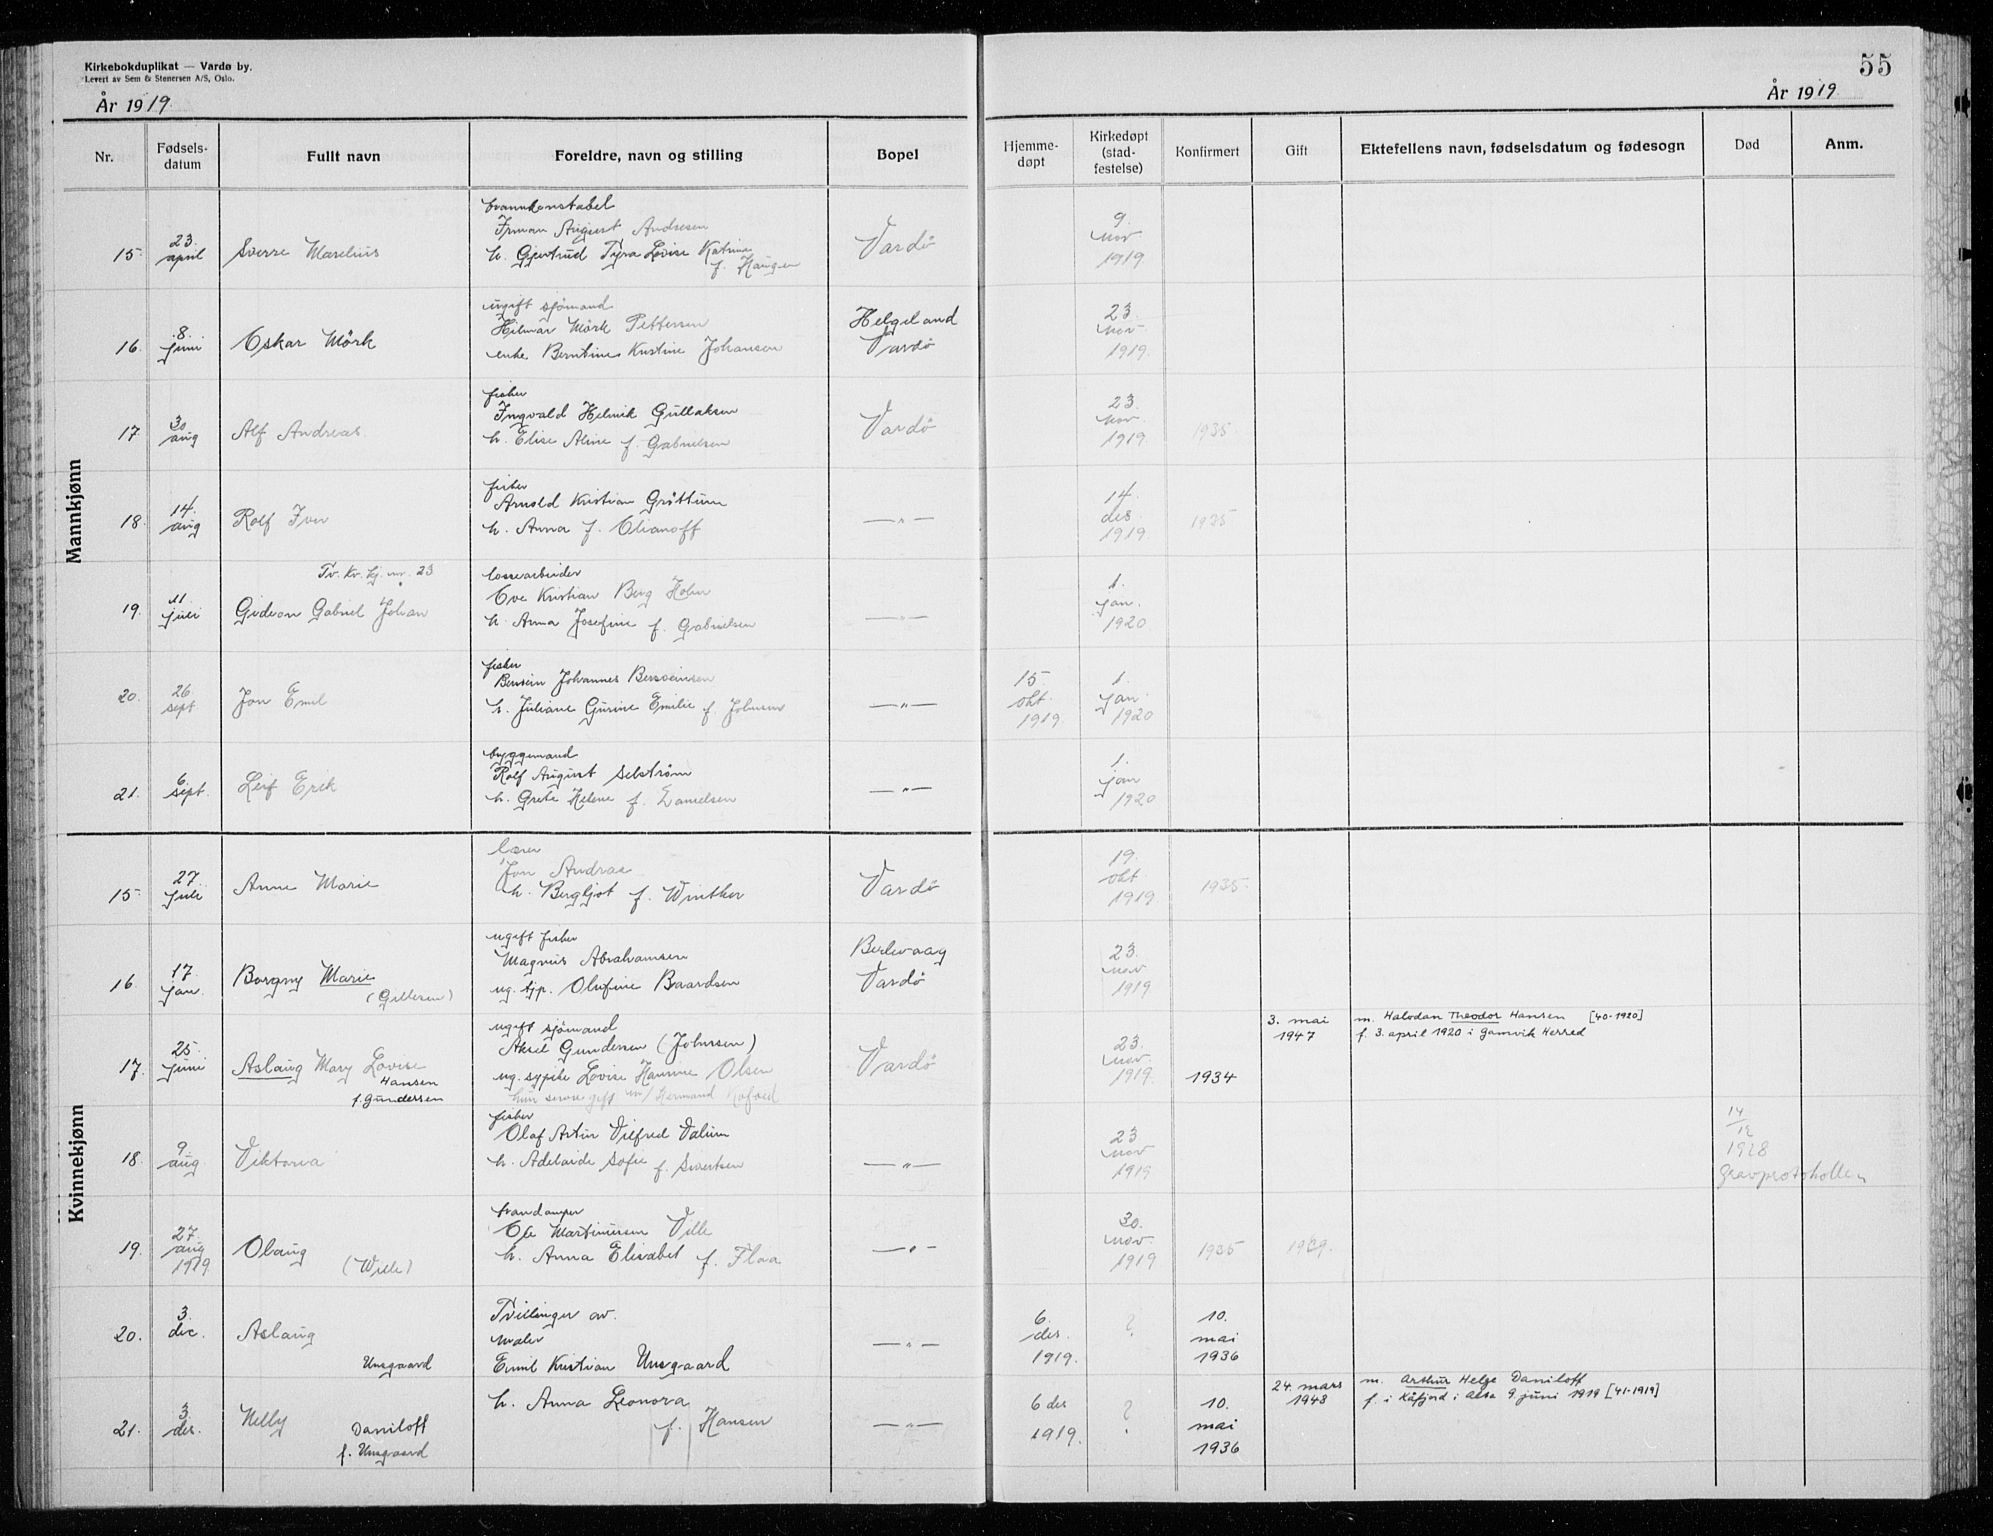 Kirkebokduplikat — Vardø by.
Levert av Sem & Stenersen A/S, Oslo.
År 1919.
55
År 1919
Nr.
Fødsels-
datum
Fullt navn
Foreldre, navn og stilling
Bopel
Hjemme-
døpt
Kirkedøpt
(stad-
festelse)
Konfirmert
Gift
Ektefellens navn, fødselsdatum og fødesogn
Død
Anm.
Mannkjønn
brannkonstabel
Irman August Andresen
15. 23. april Sverre Marelius
h. Gjertrud Tyra Lovise Katrine
f. Haugen
Vardø
9. nov 1919
ugift sjömand
Hilmar Mörk Pettersen
16. 8. juni Oskar Mörk
enke Berntine Kristine Johansen
Helgeland
Vardø
23. nov 1919.
fisker
Ingvald Helmik Gullaksen
17. 30 aug Alf Andreas
h. Elise Aline f. Gabrielsen
Vardø
23. nov. 1919. 1935.
fisker
Arnold Kristian Gröttum
18. 14. aug Rolf Iver
h. Anna f. Olianoff
—"—
14. des. 1919. 1935
Tv. Kv. kj. nr. 23
lossearbeider
Ove Kristian Berg Holm
19. 11. juli Gideon Gabriel Johan
h. Anna Josefine f. Gabrielsen
—"—
1. jan. 1920.
fisker
Johannes
20. 26. sept. Jon Emil
h. Juliane Gurine Emilie f. Johnsen
—"—
15. okt. 1919. 1. jan. 1920
byggemand
Rolf August Selström
21. 6. sept. Leif Erik
h. Grete Helene f. Danielsen
—"—
1. jan 1920
Kvinnekjønn
lærer
Jon Andraa
15. 27 juli Anne Marie
h. Bergljot f. Winther
Vardø
19. okt. 1919. 1935.
ugift fisker
Magnus Abrahamsen
16. 17. jan. Borgny Marie
(Gillesen)
ug. tjp. Olufine Baardsen
Berlevaag
Vardø
23. nov 1919
ugift sjömand
Aksel Gundersen (Johnsen)
17. 25. juni Aslaug Mary Lovise
Hansen
f. Gundersen
ug. sypike Lovise Hansine Olsen
hun senere gift m/ Hermand Kofoed
Vardø
23. nov. 1919. 1934
3. mai 1947
m. Halvdan Theodor Hansen [40-1920]
f. 3. april 1920 i Gamvik Herred
fisker
Olaf Artur Vilfred Valum
18. 9 aug. Viktoria
h. Adelaide Sofie f. Sivertsen
—"—
23 nov 1919
14/12 1928
gravprotokollen
Ole Martinussen Ville
19. 27. aug 1919. Olaug
(Wille)
h. Anna Elisabet f. Flaa
—"—
30. nov. 1919 1935 1939.
Tvillinger av.
maler
20. 3. dec. Aslaug
Unsgaard
Emil Kristian Unsgaard
—"—
6. des. 1919. ? 10. mai 1936
h. Anna Leonora
f. Hansen
21. 3. des. Nelly
Daniloff
f. Unsgaard
—"—
6 des 1919. ? 10. mai 1936
24. mars 1948
m. Arthur Helge Daniloff
f. i Kåfjord i Alta 9. juni 1919 [41-1919]